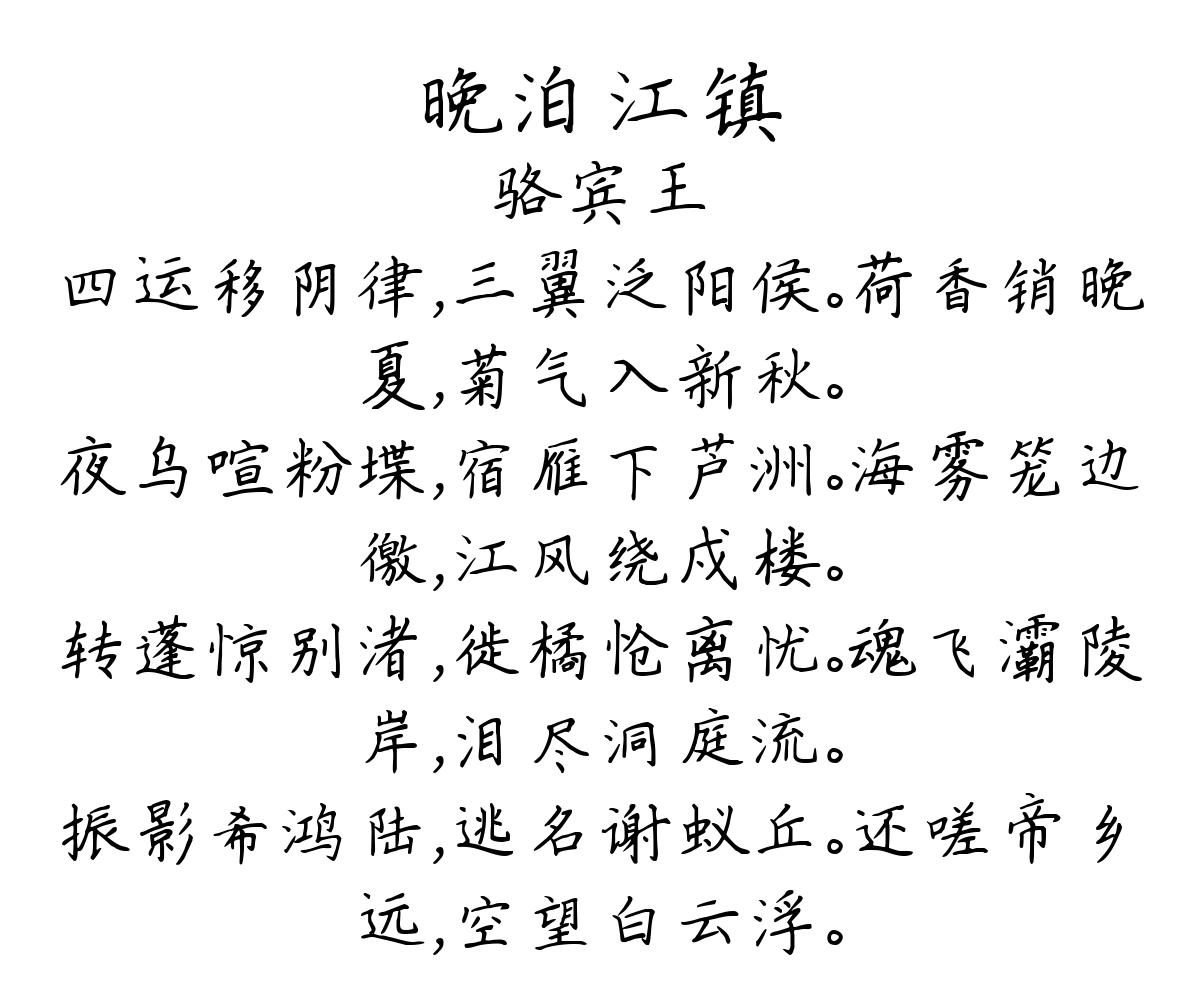 晚泊江镇
骆宾王
四运移阴律,三翼泛阳侯。荷香销晚
夏,菊气入新秋。
夜乌喧粉堞,宿雁下芦洲。海雾笼边
徼,江风绕戍楼。
转蓬惊别渚,徙橘怆离忧。魂飞灞陵
岸,泪尽洞庭流。
振影希鸿陆,逃名谢蚁丘。还嗟帝乡
远,空望白云浮。